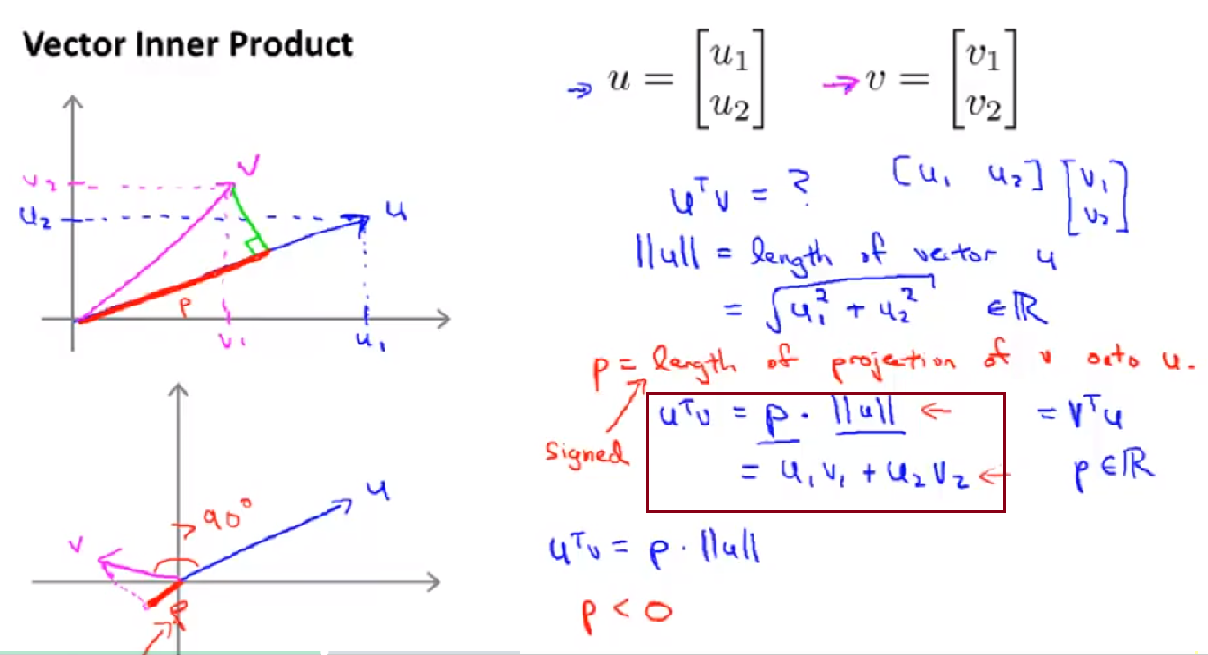 Vector Inner Product
→ u = [u₁ u₂] → v = [v₁ v₂]
uᵀv = ? [u₁ u₂] [v₁ v₂]
||u|| = length of vector u
= √(u₁² + u₂²) ∈ ℝ
p = length of projection of v onto u.
signed
uᵀv = p · ||u|| ← = vᵀu
= u₁v₁ + u₂v₂ ← p ∈ ℝ
uᵀv = p · ||u||
p < 0
v
v₂
u₂
u
p
v₁
u₁
> 90°
u
v
p